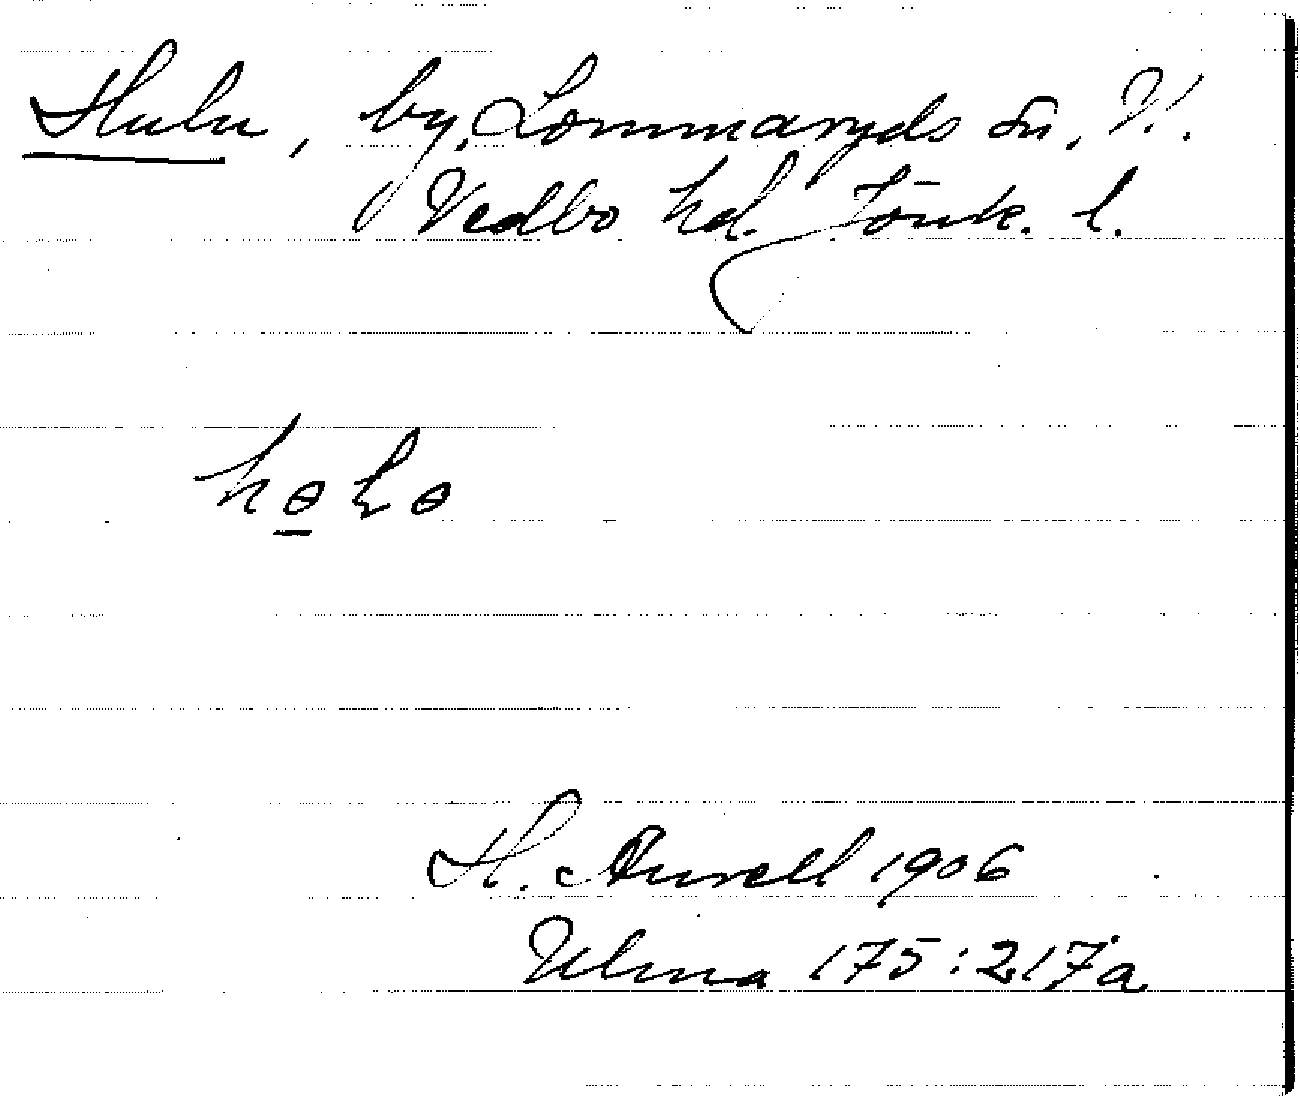 Hulu, by, Lommaryds sn, N.
Vedbo hd. Jönk. l.
hɵlɵ
H. Aurell 1906
Ulma 175:217a